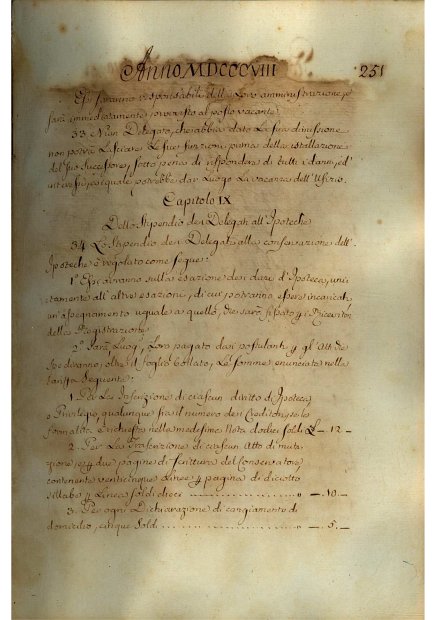 Anno MDCCCVIII 251
Essi saranno responsabili della loro amministrazione, e
sarà immediatamente provvisto al posto vacante.
33. Niun Delegato, che abbia dato la sua dimissione
non potrà lasciare le sue funzioni prima della installazione
del suo successore, sotto pena di rispondere di tutti i danni, ed
interessi, ai quali potrebbe dar luogo la vacanza dell'Ufizio.
Capitolo IX
Dello Stipendio dei Delegati all'Ipoteche
34. Lo Stipendio dei Delegati alla conservazione dell'
Ipoteche è regolato come segue:
1.° Essi avranno sulla esazione dei dazi d'Ipoteca, uni=
tamente all'altre esazioni, di cui potranno essere incaricati
un'assegnamento uguale a quello, che sarà fissato ai Ricevitori
della Registrazione
2.° Sarà, Loro pagato dai postulanti gl'Atti
che daranno, oltre il foglio bollato, Le somme enunciate nella
tariffa seguente:
1. Per Le Inscrizione di ciascun diritto di Ipoteca,
o Privilegio, qualunque sia il numero dei Creditori, se la
formalità è richiesta nella medesima Nota dodici soldi L — 12 —
2. Per La Trascrizione di ciascun Atto di muta=
zione, due pagine di scrittura del Conservatore
contenente venticinque Linee pagina di diciotto
sillabe Linea soldi dieci ........ " — 10. —
3. Per ogni Dichiarazione di cangiamento di
domicilio, cinque soldi ........ " — 5. —